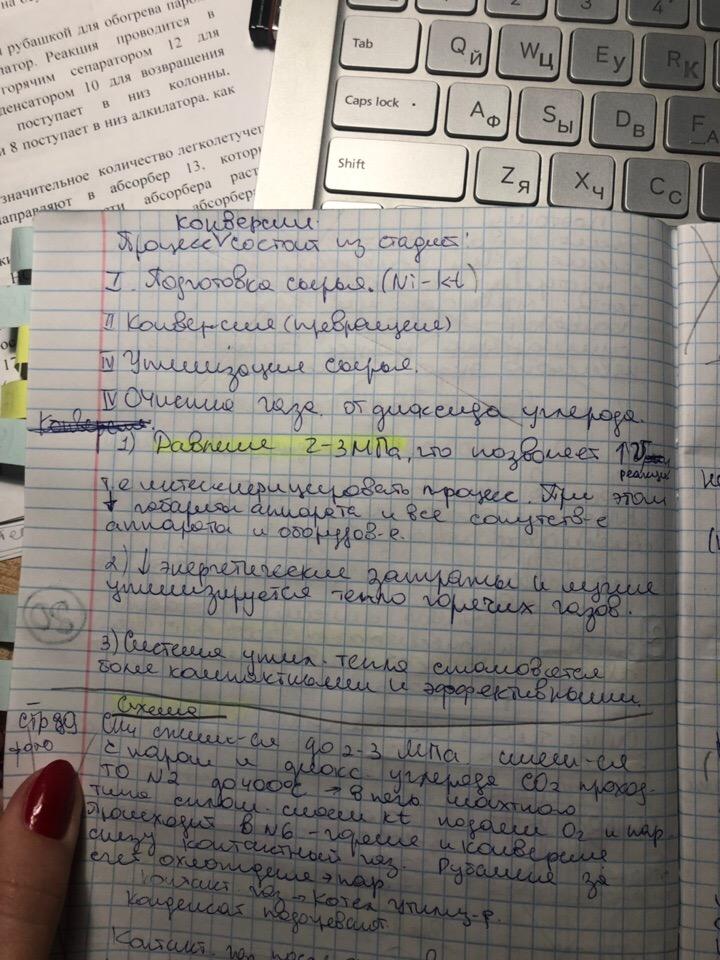 рубашкой для обогрева
Реакция проводится в
горячим сепаратором 12 для
10 для возвращения
поступает в низ колонны.
и 8 поступает в низ алкилатора, как
значительное количество
в абсорбер 13,
абсорбера
Tab
Q Й
W Ц
E У
R К
Caps lock
A Ф
S Ы
D В
F А
Shift
Z Я
X Ч
C С
конверсии
Процесс состоит из стадий:
I. Подготовка сырья. (Ni-kt)
II Конверсия (превращение)
IV Утилизация сырья.
IV Очистка газа от диоксида углерода.
1) Давление 2-3 МПа, что позволяет ↑ V
реакции
т.е интенсифицировать процесс. При этом
↓ габариты аппарата и все сопутств-е
аппарата и оборудов-е.
2) ↓ энергетические затраты и лучше
утилизируется тепло горячих газов.
3) Система утил. тепла становится
более компактными и эффективными.
30
Схема
стр 89
фото
до 2-3 МПа смеш-ся
с паром и диокс. углерода CO2 проход.
ТО N2 до 400°C → в него шахтного
типа сплош. слоем kt подаем O2 и пар.
Происходит в N6 - горение и конверсия
снизу контактный газ. Рубашка за
счет охлаждения → пар
Контакт. газ → Котел утилиз-р.
Конденсат подогревают.
Контакт. газ после